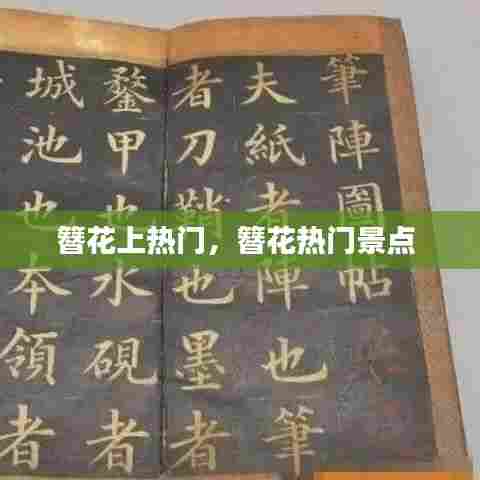 簪花上热门，簪花热门景点
筆陣圖帖
夫紙者陣也筆
者刀鞘也墨者
鍪甲也水硯者
城池也本領者